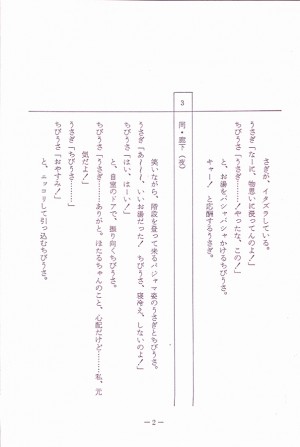 さぎが、イタズラしている。
うさぎ「なーに、物思いに浸ってんのよ!」
ちびうさ「うさぎ……!やったな、この!」
と、お湯をバシャバシャかけるちびうさ。
キャー!と応酬するうさぎ。
3 同・廊下(夜)
笑いながら、階段を登って来るパジャマ姿のうさぎとちびうさ。
うさぎ「あーーー、いいお湯だった! ちびうさ、寝冷え、しないのよ!」
ちびうさ「はい、はーい!」
と、自室のドアで、振り向くちびうさ。
ちびうさ「うさぎ……………ありがと。ほたるちゃんのこと、心配だけど………私、元
気だよ!」
うさぎ「ちびうさ………」
ちびうさ「おやすみ!」
と、ニッコリして引っ込むちびうさ。
―2―